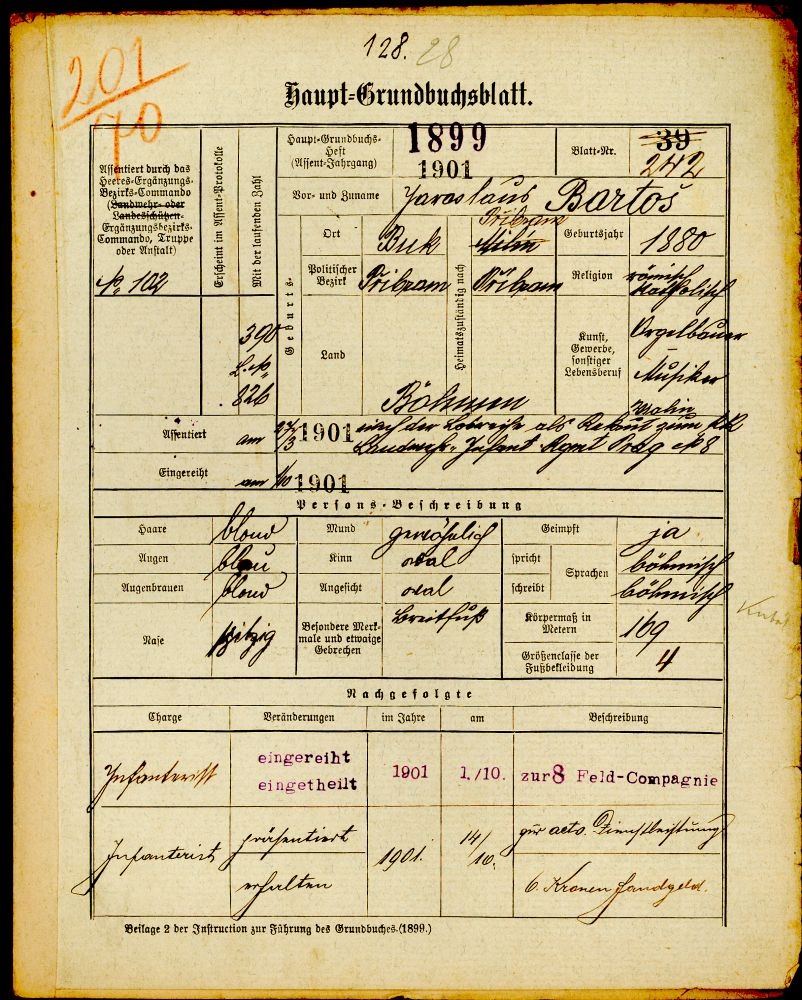 128. 28
201
70
Haupt-Grundbuchsblatt.
Assentiert durch das
Heeres-Ergänzungs-
Bezirks-Commando
(Landwehr- oder
Landesschützen-
Ergänzungsbezirks-
Commando, Truppe
oder Anstalt)
No 102
Erscheint im Assent-Protokolle
Mit der laufenden Zahl
390
826
Haupt-Grundbuchs-
Heft
(Assent-Jahrgang)
1899
1901
Blatt-Nr.
39
242
Vor- und Zuname
Jaroslaus Bartoš
Geburts-
Ort
Buk
Politischer
Bezirk
Přibram
Land
Böhmen
Heimatszuständig nach
Přibram
Milin
Přibram
Geburtsjahr
1880
Religion
römisch
katholisch
Kunst,
Gewerbe,
sonstiger
Lebensberuf
Orgelbauer
Musiker
Violin
Assentiert
am
27/3 1901
auf der Losreihe als Rekrut zum kk
Landwehr-Infant Rgmt Prag No 8
Eingereiht
am 1/10 1901
Persons-Beschreibung
Haare
blond
Mund
gewöhnlich
Geimpft
ja
Augen
blau
Kinn
oval
spricht
Sprachen
böhmisch
Augenbrauen
blond
Angesicht
oval
schreibt
böhmisch
Nase
spitzig
Besondere Merk-
male und etwaige
Gebrechen
Breitfuß
Körpermaß in
Metern
169
Größenclasse der
Fußbekleidung
4
Nachgefolgte
Charge
Veränderungen
im Jahre
am
Beschreibung
Infanterist
eingereiht
eingetheilt
1901
1./10.
zur 8 Feld-Compagnie
Infanterist
präsentiert
erhalten
1901.
14/10.
zur activ. Dienstleistung
6. Kronen Handgeld.
Beilage 2 der Instruction zur Führung des Grundbuches (1899.)